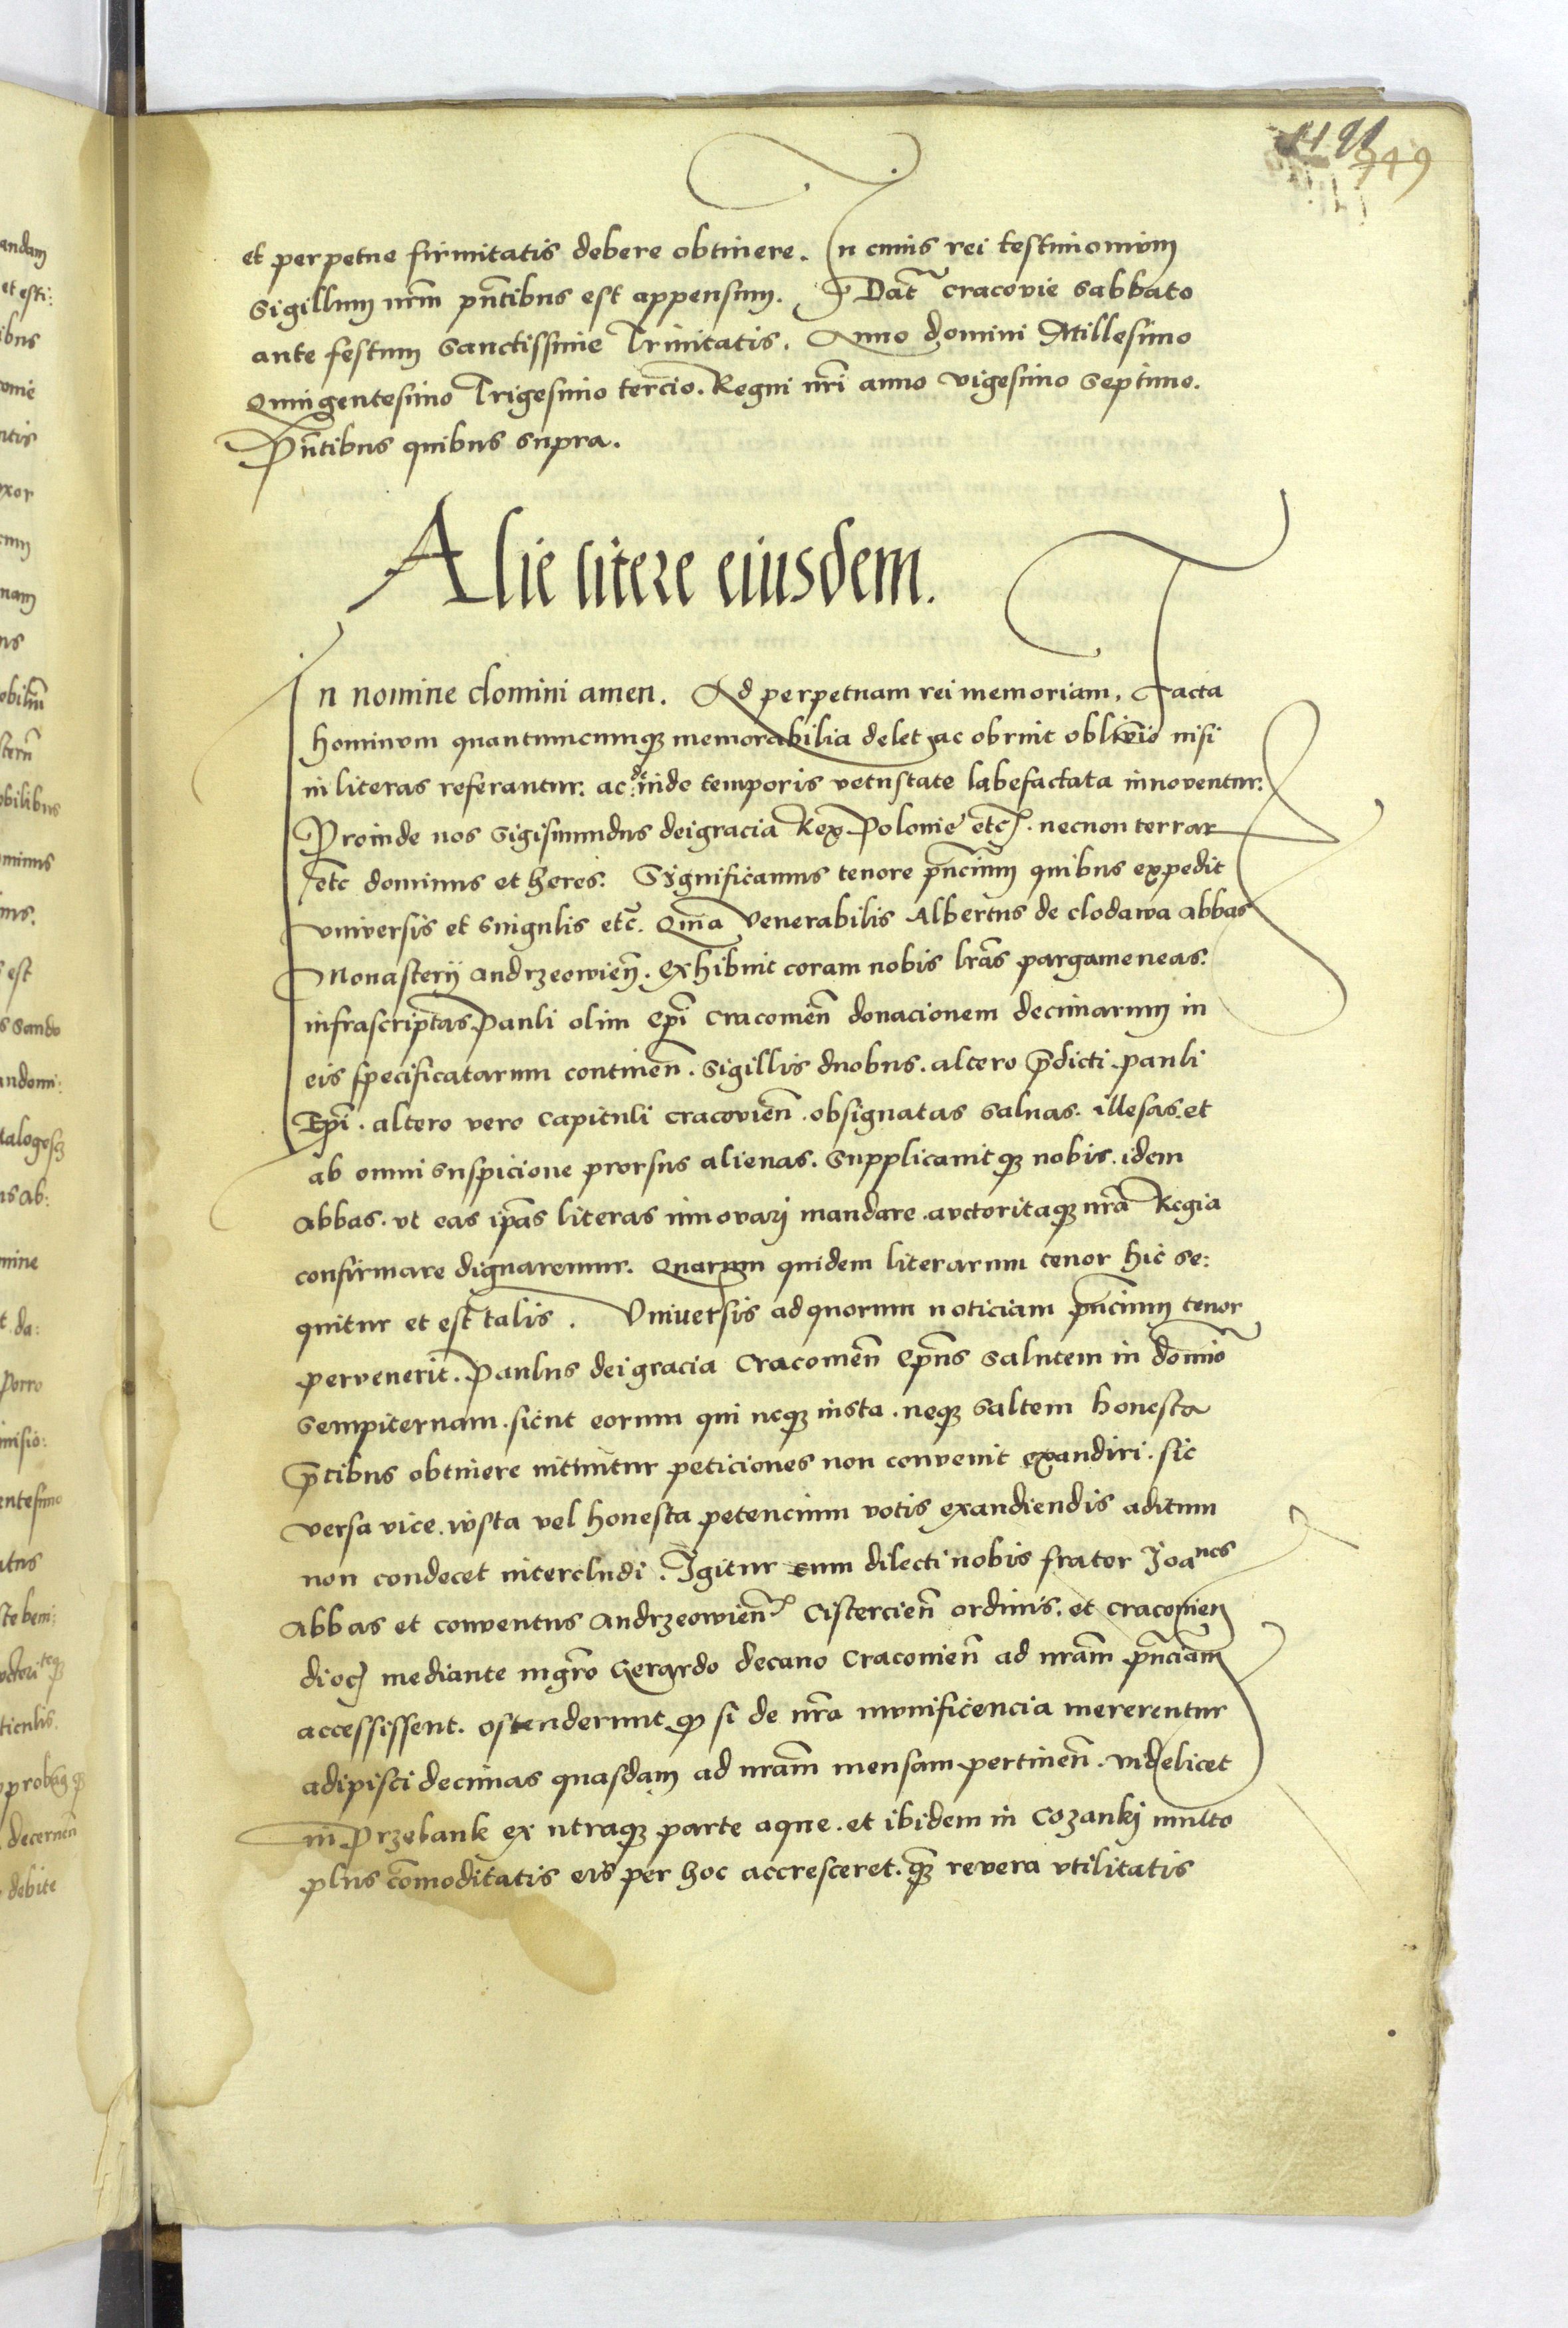 749
et perpetue firmitatis debere obtinere. In cuius rei testimonium
Sigillum nrm̃ pñtibus est appensum. Dat̃ Cracovie Sabbato
ante festum Sanctissime Trinitatis. Anno domini Millesimo
Quingentesimo Trigesimo tercio. Regni nrĩ anno vigesimo Septimo.
Pñtibus quibus supra.
Alie litere eiusdem.
In nomine domini amen. Ad perpetuam rei memoriam. Facta
hominum quantumcumqz memorabilia delet ac obruit oblivio nisi
in literas referantur. ac deinde temporis vetustate labefactata innoventur.
Proinde nos Sigismundus dei gracia Rex Polonie etc̃. necnon terrar
etc dominus et heres. Significamus tenore pñcium quibus expedit
vniversis et singulis etc̃. Quia Venerabilis Albertus de Clodawa Abbas
Monasterij Andrzeowien̄. exhibuit coram nobis lrãs pargameneas.
infrascriptas Pauli olim Epĩ Cracovien̄ donacionem decimarum in
eis specificatarum continen̄. Sigillis duobus. altero p̃dicti Pauli
Epĩ. altero vero Capituli Cracovien̄. obsignatas salvas. illesas. et
ab omni suspicione prorsus alienas. Supplicavitqz nobis. idem
Abbas. vt eas ip̃as literas innovari mandare. auctoritaqz nrã Regia
confirmare dignaremur. Quarum quidem literarum tenor hic se:
quitur et est talis. Vniversis ad quorum noticiam pñcium tenor
pervenerit. Paulus dei gracia Cracovien̄ Ep̃us salutem in domino
sempiternam. sicut eorum qui neqz iusta. neqz saltem honesta
p̃cibus obtinere nituntur peticiones non convenit exaudiri. sic
versa vice. iusta vel honesta petencium votis exaudiendis aditum
non condecet intercludi. Igitur cum dilecti nobis frater Joanes
Abbas et conventus Andrzeowien̄ Cistercien̄ ordinis. et Cracovien
dioc̃ mediante mgrõ Gerardo decano Cracovien̄ ad nrãm pñciam
accessissent. ostenderunt qz si de nrã munificencia mererentur
adipisci decimas quasdam ad nrãm mensam pertinen̄. videlicet
in Przebank ex utraqz parte aque. et ibidem in Cozankj multo
plus com̃oditatis eis per hoc accresceret. qz̃ revera vtilitatis